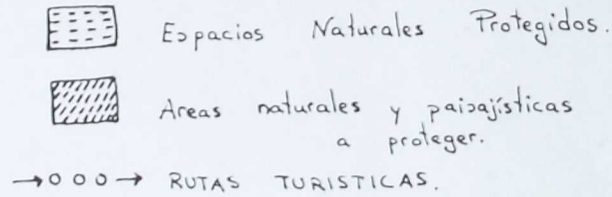 Espacios Naturales Protegidos.
Areas naturales y paisajísticas
a proteger.
RUTAS TURISTICAS.